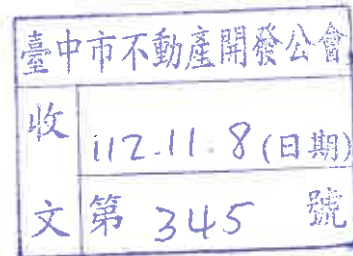 臺中市不動產開發公會
收
112.11.8(日期)
文 第 345 號